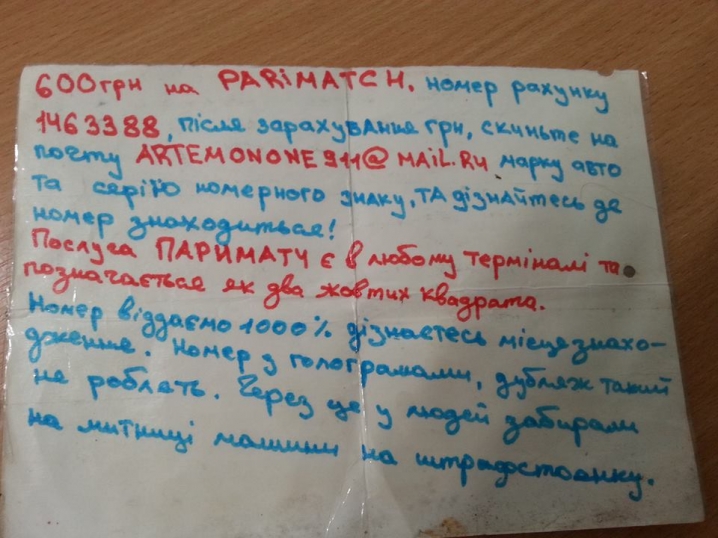 600грн на PARiMATCH. номер рахунку
1463388, після зарахування грн, скиньте на
почту ARTEMONONE911@MAiL.RU марку авто
та серію номерного знаку, ТА дізнайтесь де
номер знаходиться!
Послуга ПАРИМАТЧ є в любому терміналі та
позначається як два жовтих квадрата.
Номер віддаємо 1000% дізнаєтесь місцезнахо-
дження. Номер з голограмами, дубляж такий
не роблять. Через це у людей забирали
на митниці машини на штрафстоянку.